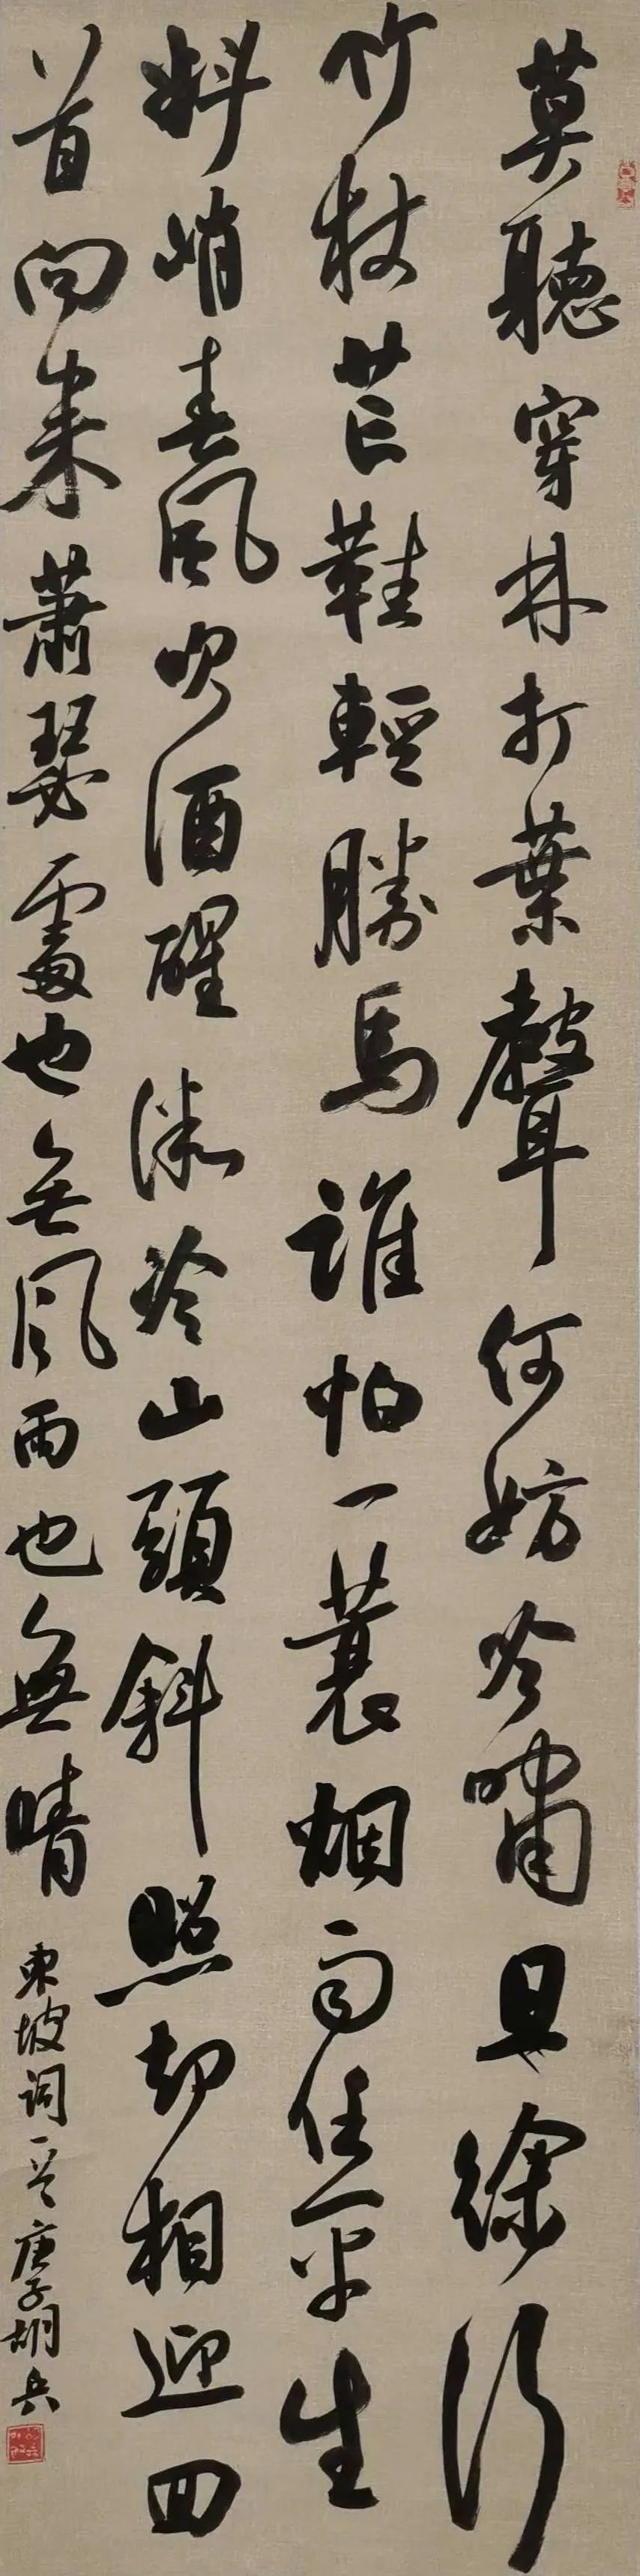 莫聽穿林打葉聲何妨吟嘯且徐行
竹杖芒鞋輕勝馬誰怕一蓑烟雨任平生
料峭春風吹酒醒微冷山頭斜照却相迎回
首向来蕭瑟處也無風雨也無晴
東坡詞一首庚子胡兵